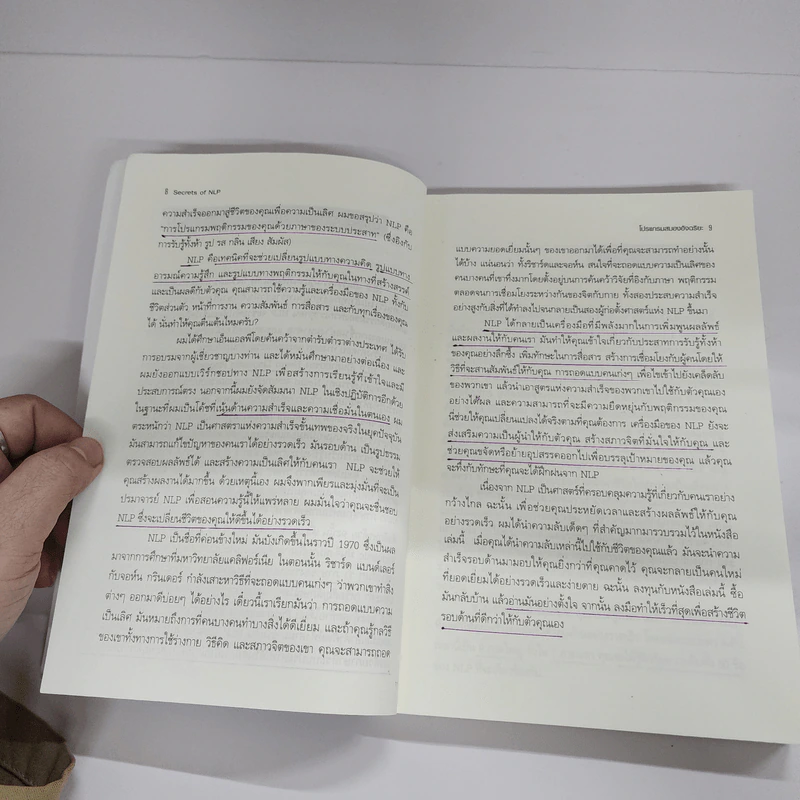 8 Secrets of NLP
ความสำเร็จออกมาสู่ชีวิตของคุณเพื่อความเป็นเลิศ ผมขอสรุปว่า NLP คือ
"การโปรแกรมพฤติกรรมของคุณด้วยภาษาของระบบประสาท" (ซึ่งอิงกับ
การรับรู้ทั้งห้า รูป รส กลิ่น เสียง สัมผัส)
NLP คือเทคนิคที่จะช่วยเปลี่ยนรูปแบบทางความคิด รูปแบบทาง
อารมณ์ความรู้สึก และรูปแบบทางพฤติกรรมให้กับคุณในทางที่สร้างสรรค์
และเป็นผลดีกับตัวคุณ คุณสามารถใช้ความรู้และเครื่องมือของ NLP ทั้งกับ
ชีวิตส่วนตัว หน้าที่การงาน ความสัมพันธ์ การสื่อสาร และกับทุกเรื่องของคุณ
ได้ นั่นทำให้คุณตื่นเต้นไหมครับ?
ผมได้ศึกษาเอ็นแอลพีโดยค้นคว้าจากตำรับตำราต่างประเทศ ได้รับ
การอบรมจากผู้เชี่ยวชาญบางท่าน และได้หมั่นศึกษามาอย่างต่อเนื่อง และ
ผมยังออกแบบเวิร์กชอปทาง NLP เพื่อสร้างการเรียนรู้ที่เข้าใจและมี
ประสบการณ์ตรง นอกจากนี้ผมยังจัดสัมมนา NLP ในเชิงปฏิบัติการอีกด้วย
ในฐานะที่ผมเป็นโค้ชที่เน้นด้านความสำเร็จและความเชื่อมั่นในตนเอง ผม
ตระหนักว่า NLP เป็นศาสตราแห่งความสำเร็จชั้นเทพของจริงในยุคปัจจุบัน
มันสามารถแก้ไขปัญหาของคนเราได้อย่างรวดเร็ว มันรอบด้าน เป็นรูปธรรม
ตรวจสอบผลลัพธ์ได้ และสร้างความเป็นเลิศให้กับคนเรา NLP จะช่วยให้
คุณสร้างผลงานได้มากขึ้น ด้วยเหตุนี้เอง ผมจึงพากเพียรและมุ่งมั่นที่จะเป็น
ปรมาจารย์ NLP เพื่อสอนความรู้นี้ให้แพร่หลาย ผมมั่นใจว่าคุณจะชื่นชอบ
NLP ซึ่งจะเปลี่ยนชีวิตของคุณให้ดีขึ้นได้อย่างรวดเร็ว
NLP เป็นชื่อที่ค่อนข้างใหม่ มันบังเกิดขึ้นในราวปี 1970 ซึ่งเป็นผล
มาจากการศึกษาที่มหาวิทยาลัยแคลิฟอร์เนีย ในตอนนั้น ริชาร์ด แบนด์เลอร์
กับจอห์น กรินเดอร์ กำลังเสาะหาวิธีที่จะถอดแบบคนเก่งๆ ว่าพวกเขาทำสิ่ง
ต่างๆ ออกมาดีบ่อยๆ ได้อย่างไร เดี๋ยวนี้เราเรียกมันว่า การถอดแบบความ
เป็นเลิศ มันหมายถึงการที่คนบางคนทำบางสิ่งได้ดีเยี่ยม และถ้าคุณรู้กลวิธี
ของเขาทั้งทางการใช้ร่างกาย วิธีคิด และสภาวจิตของเขา คุณจะสามารถถอด
โปรแกรมสมองอัจฉริยะ 9
แบบความยอดเยี่ยมนั้นๆ ของเขาออกมาได้เพื่อที่คุณจะสามารถทำอย่างนั้น
ได้บ้าง แน่นอนว่า ทั้งริชาร์ดและจอห์น สนใจที่จะถอดแบบความเป็นเลิศของ
คนบางคนที่เขาทึ่งมากโดยตั้งอยู่บนการค้นคว้าวิจัยที่อิงกับภาษา พฤติกรรม
ตลอดจนการเชื่อมโยงระหว่างกันของจิตกับกาย ทั้งสองประสบความสำเร็จ
อย่างสูงกับสิ่งที่ได้ทำลงไปจนกลายเป็นสองผู้ก่อตั้งศาสตร์แห่ง NLP ขึ้นมา
NLP ได้กลายเป็นเครื่องมือที่มีพลังมากในการเพิ่มพูนผลลัพธ์
และผลงานให้กับคนเรา มันทำให้คุณเข้าใจเกี่ยวกับประสาทการรับรู้ทั้งห้า
ของคุณอย่างลึกซึ้ง เพิ่มทักษะในการสื่อสาร สร้างการเชื่อมโยงกับผู้คนโดยใช้
วิธีที่จะสานสัมพันธ์ให้กับคุณ การถอดแบบคนเก่งๆ เพื่อไขเข้าไปยังเคล็ดลับ
ของพวกเขา แล้วนำเอาสูตรแห่งความสำเร็จของพวกเขาไปใช้กับตัวคุณเอง
อย่างได้ผล และความสามารถที่จะมีความยืดหยุ่นกับพฤติกรรมของคุณ
นี่ช่วยให้คุณเปลี่ยนแปลงได้จริงตามที่คุณต้องการ เครื่องมือของ NLP ยังจะ
ส่งเสริมความเป็นผู้นำให้กับตัวคุณ สร้างสภาวจิตที่มั่นใจให้กับคุณ และ
ช่วยคุณขจัดหรือย้ายอุปสรรคออกไปเพื่อบรรลุเป้าหมายของคุณ แล้วคุณ
จะทึ่งกับทักษะที่คุณจะได้ฝึกฝนจาก NLP
เนื่องจาก NLP เป็นศาสตร์ที่ครอบคลุมความรู้ที่เกี่ยวกับคนเราอย่าง
กว้างไกล ฉะนั้น เพื่อช่วยคุณประหยัดเวลาและสร้างผลลัพธ์ให้กับคุณ
อย่างรวดเร็ว ผมได้นำความลับเด็ดๆ ที่สำคัญมากมารวบรวมไว้ในหนังสือ
เล่มนี้ เมื่อคุณได้นำความลับเหล่านี้ไปใช้กับชีวิตของคุณแล้ว มันจะนำความ
สำเร็จรอบด้านมามอบให้คุณยิ่งกว่าที่คุณคาดไว้ คุณจะกลายเป็นคนใหม่
ที่ยอดเยี่ยมได้อย่างรวดเร็วและง่ายดาย ฉะนั้น ลงทุนกับหนังสือเล่มนี้ ซื้อ
มันกลับบ้าน แล้วอ่านมันอย่างตั้งใจ จากนั้น ลงมือทำให้เร็วที่สุดเพื่อสร้างชีวิต
รอบด้านที่ดีกว่าให้กับตัวคุณเอง